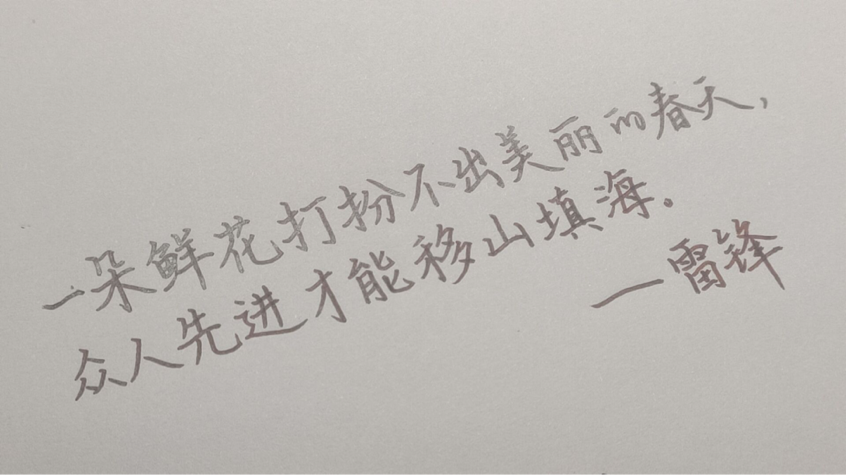 一朵鲜花打扮不出美丽的春天，
众人先进才能移山填海。
—雷锋